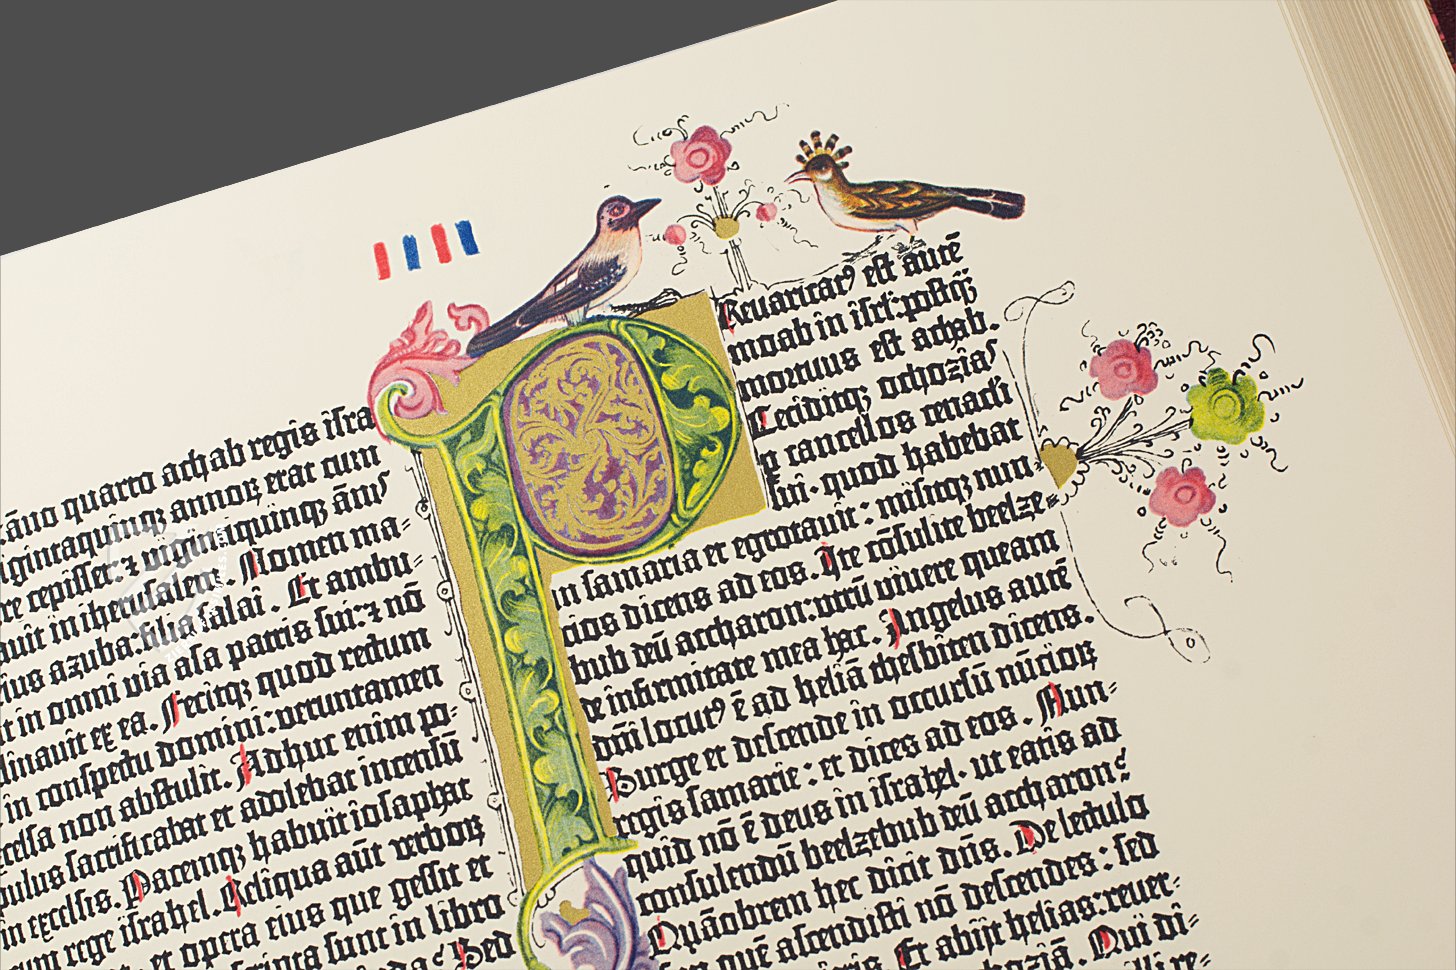 IIII
āno quarto achab regis isra
gintaquinq; annoꝝ erat cum
re cepisset: ⁊ vigintiquinq; ānis
auit in iherusalem. Nomen ma-
azuba filia salai. Et ambu-
in omni via asa patris sui: ⁊ nō
dinauit ex ea. Fecitq; quod rectum
in conspectu domini: veruntamen
celsa non abstulit. Adhuc enim po-
pulus sacrificabat et adolebat incensū
in excelsis. Pacemq; habuit iosaphat
cum rege israhel. Reliqua aūt verboꝝ
et opera eius que gessit et
sunt in libro
Sed
P
Reuaricatꝰ est autē
moab in isrl: postq̄
mortuus est achab.
Ceciditq; ochozias
p cancellos cenacli
sui. quod habebat
in samaria et egrotauit: misitq; nun
cios dicens ad eos. Ite cōsulite beelze-
bub deū accharon: vtrū viuere queam
de infirmitate mea hac. Angelus autē
dn̄i locutꝰ ē ad heliā thesbiten dicens.
Surge et descende in occursū nūcioꝝ
regis samarie: et dices ad eos. Nun-
quid nō ē deus in israhel. ut eatis ad
consulendū beelzebub deū accharon?
Quāobrem hec dicit dn̄s. De lectulo
quē ascendisti nō descendes: sed
Et abijt helias: reuer-
ochoziā. Qui di-